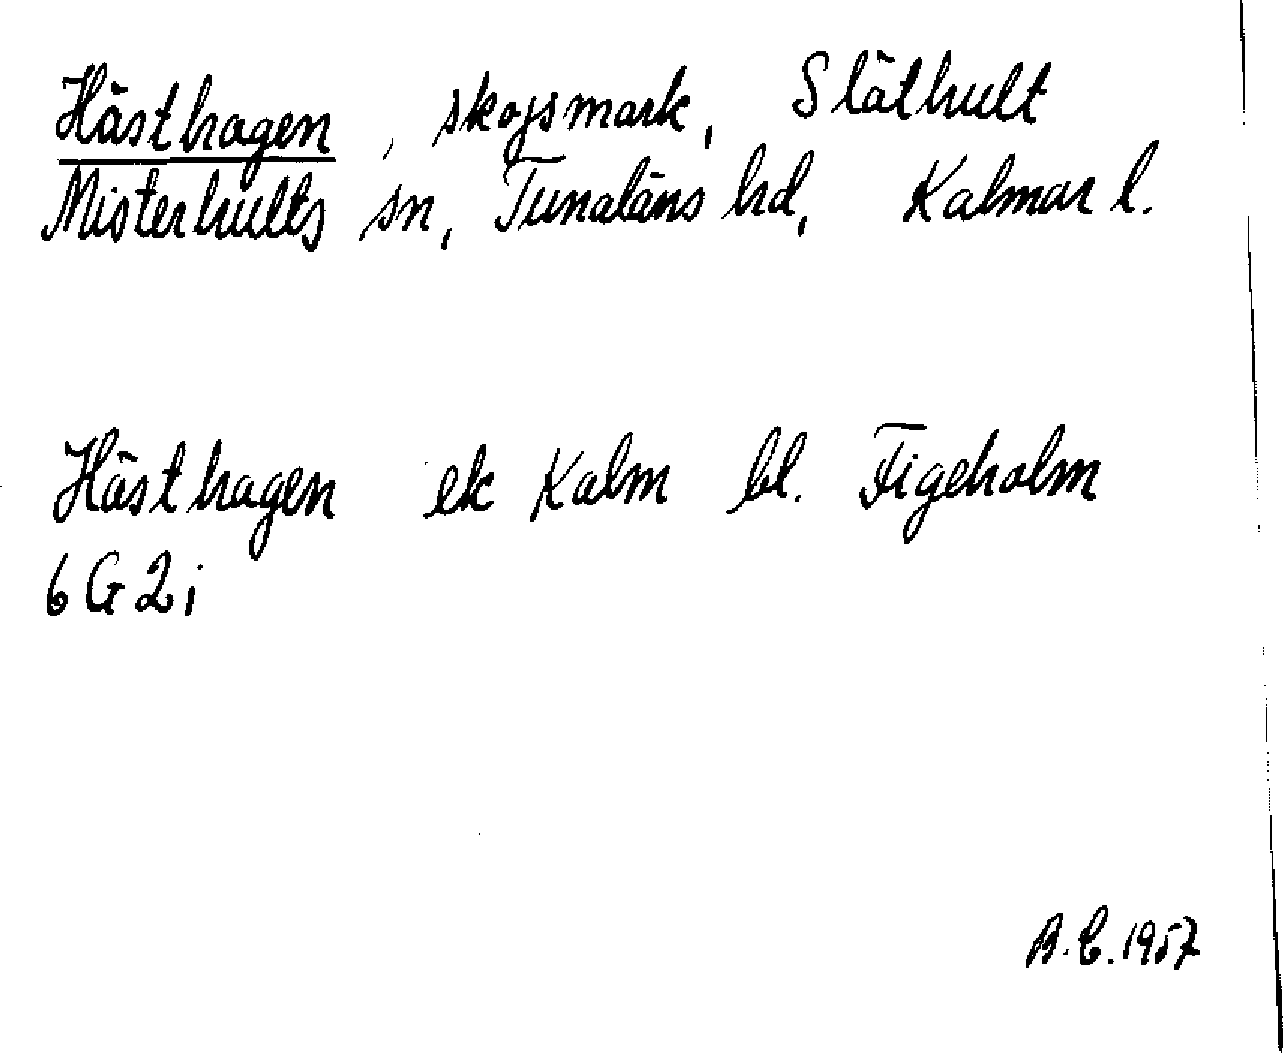 Hästhagen, skogsmark, Släthult
Misterhults sn, Tunaläns hd, Kalmar l.
Hästhagen ek Kalm bl. Figeholm
6G2i
B.E. 1957